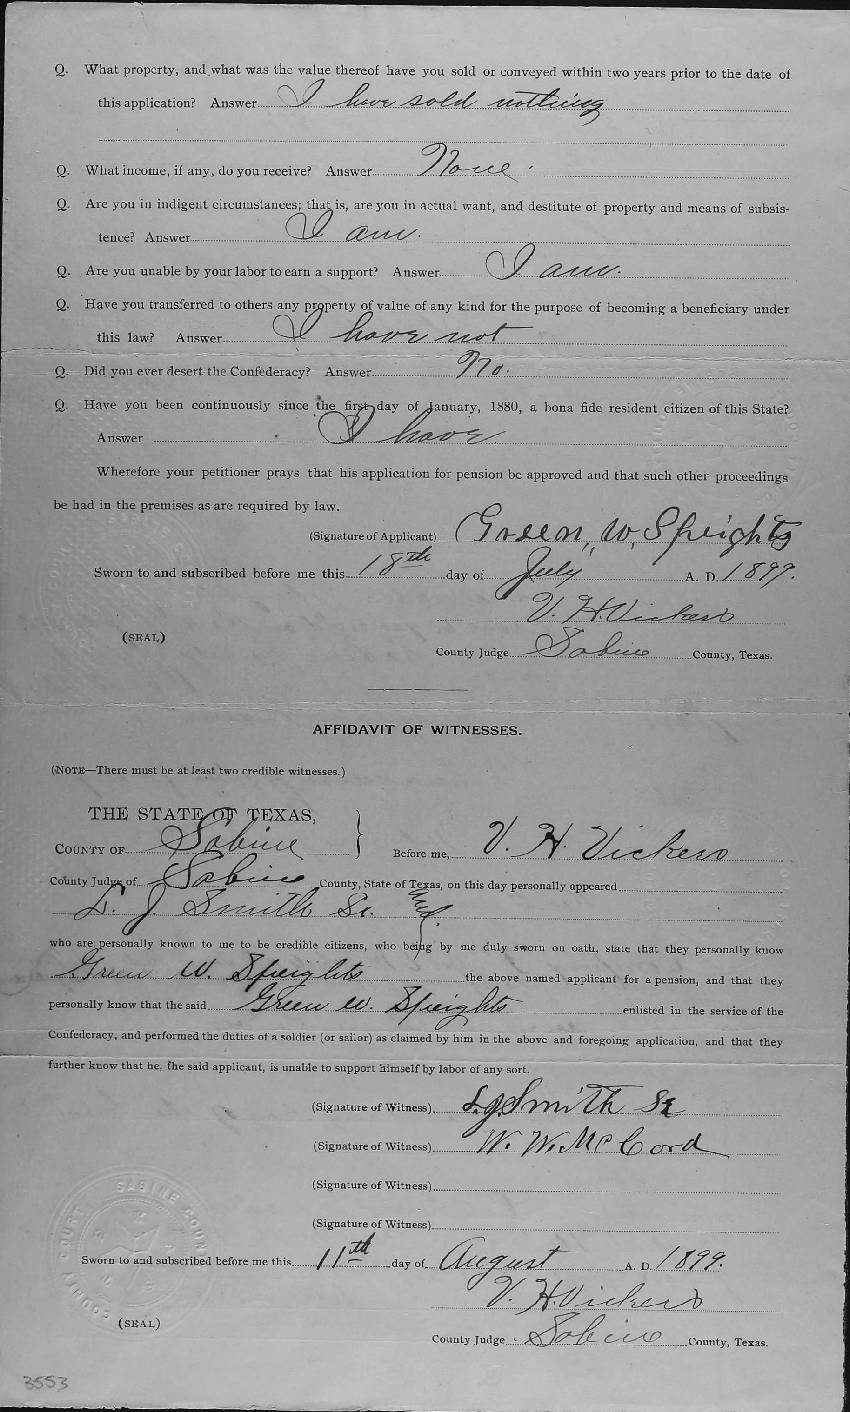 Q. What property, and what was the value thereof have you sold or conveyed within two years prior to the date of
this application? Answer I have sold nothing
Q. What income, if any, do you receive? Answer None.
Q. Are you in indigent circumstances; that is, are you in actual want, and destitute of property and means of subsis-
tence? Answer I am.
Q. Are you unable by your labor to earn a support? Answer I am.
Q. Have you transferred to others any property of value of any kind for the purpose of becoming a beneficiary under
this law? Answer I have not
Q. Did you ever desert the Confederacy? Answer No.
Q Have you been continuously since the first day of January, 1880, a bona fide resident citizen of this State?
Answer I have
Wherefore your petitioner prays that his application for pension be approved and that such other proceedings
be had in the premises as are required by law.
(Signature of Applicant) Green, W, Speights
Sworn to and subscribed before me this 18th day of July A. D. 1899.
V. H. Vickers
(SEAL)
County Judge Sabine County, Texas.
AFFIDAVIT OF WITNESSES.
(NOTE—There must be at least two credible witnesses.)
THE STATE OF TEXAS,
COUNTY OF Sabine } Before me, V. H. Vickers
County Judge of Sabine County, State of Texas, on this day personally appeared
L. J. Smith Sr. and
who are personally known to me to be credible citizens, who being by me duly sworn on oath, state that they personally know
Green W. Speights the above named applicant for a pension, and that they
personally know that the said Green W. Speights enlisted in the service of the
Confederacy, and performed the duties of a soldier (or sailor) as claimed by him in the above and foregoing application, and that they
further know that he, the said applicant, is unable to support himself by labor of any sort.
(Signature of Witness) L. J. Smith Sr
(Signature of Witness) W. W. McCord
(Signature of Witness)
(Signature of Witness)
SABINE COUNTY
COUNTY COURT
Sworn to and subscribed before me this 11th day of August A. D. 1899.
V. H. Vickers
(SEAL)
County Judge Sabine County, Texas.
3553